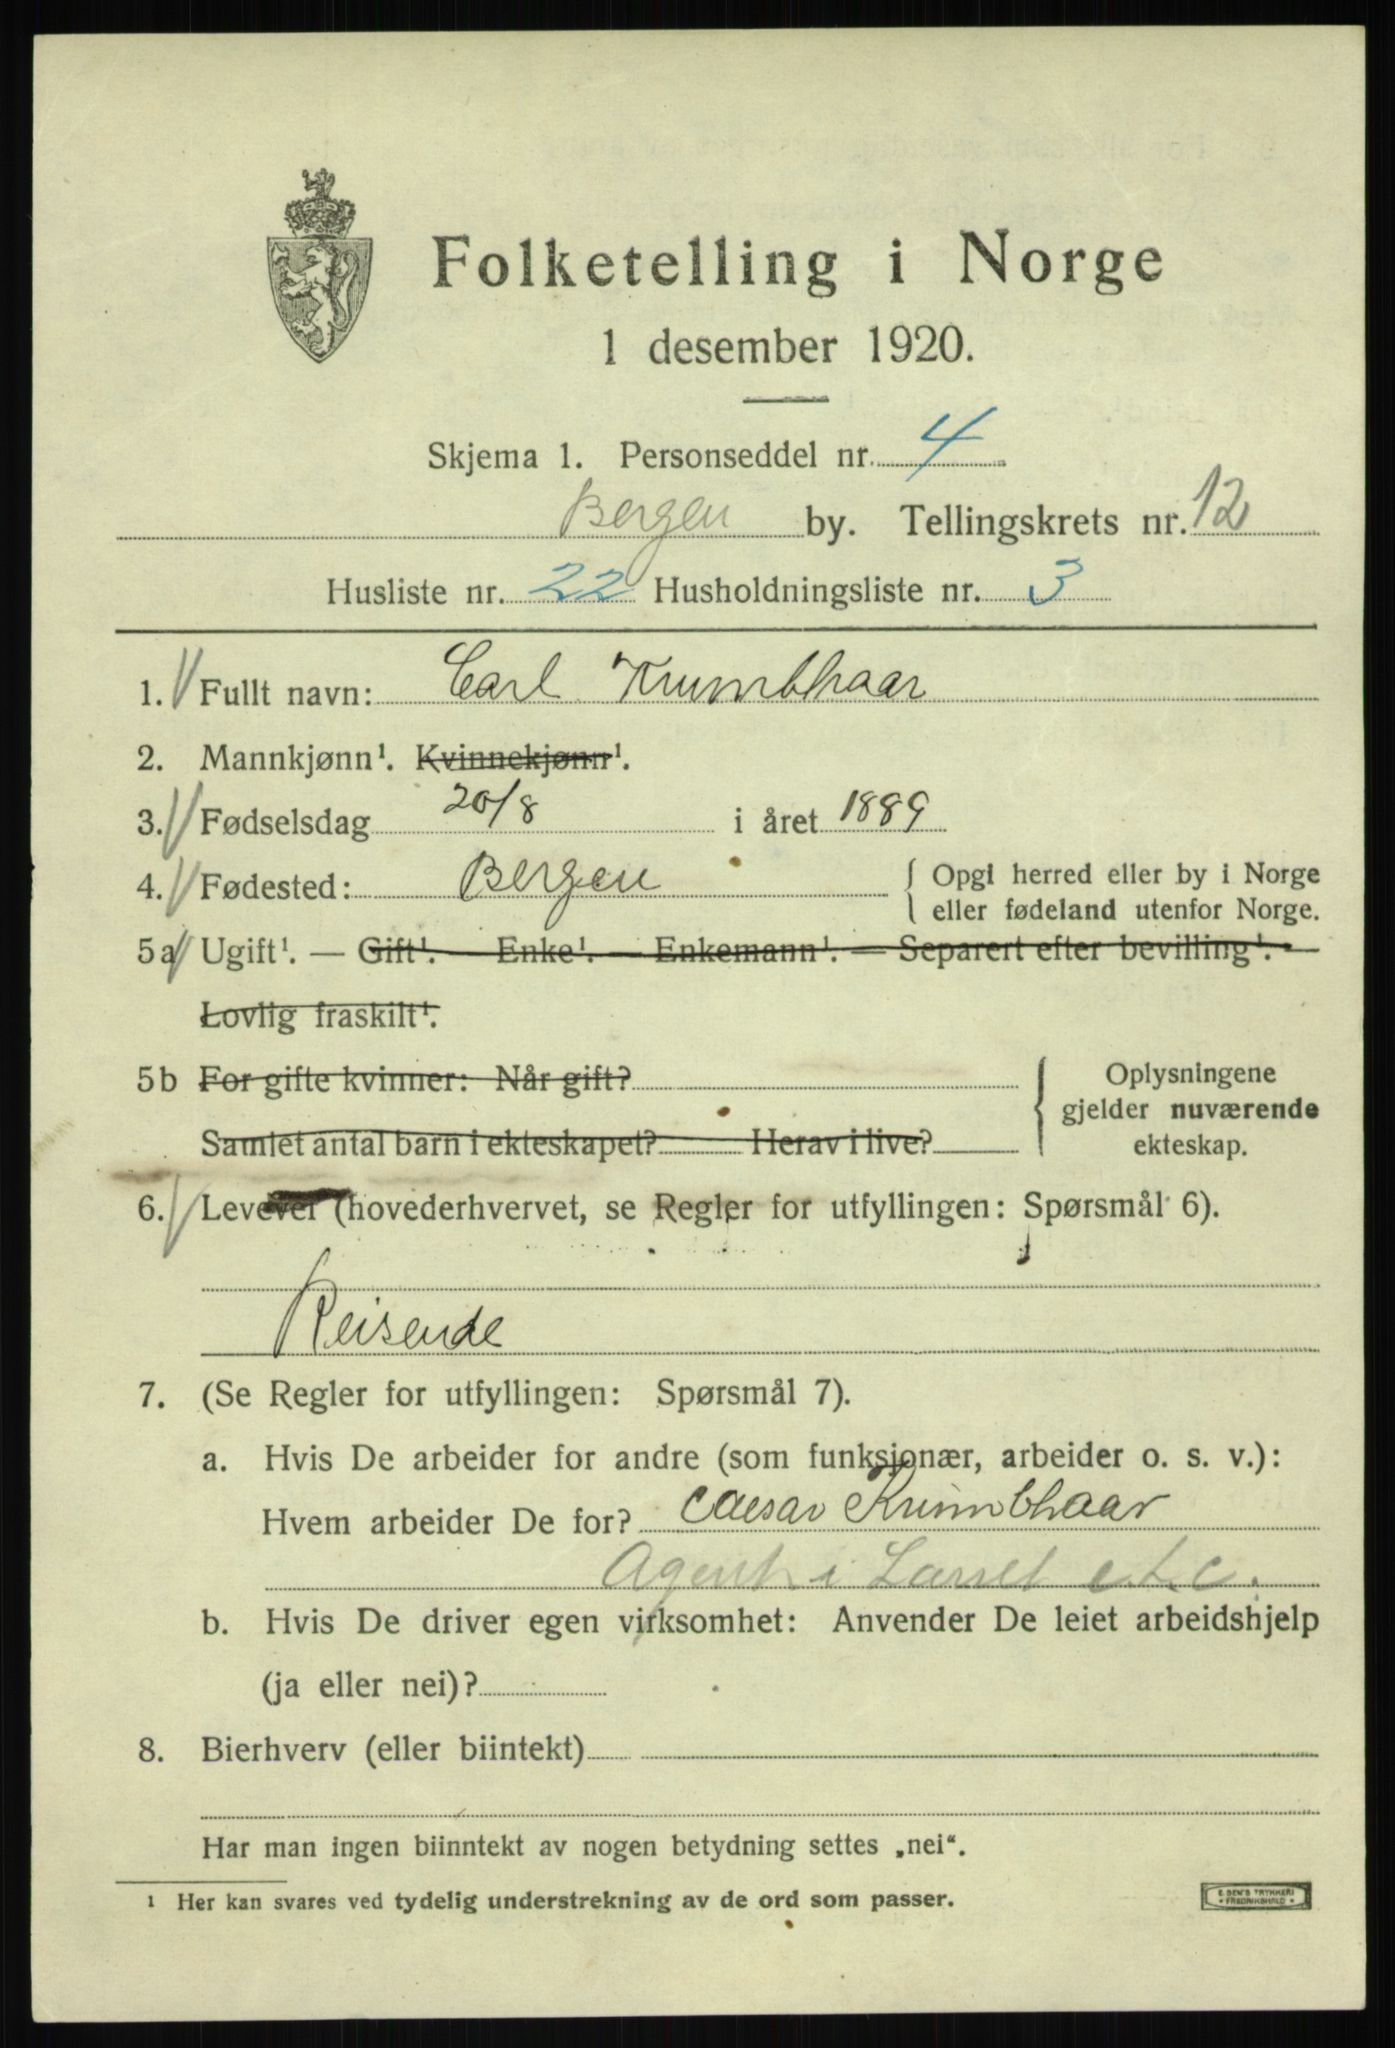 Folketelling i Norge
1 desember 1920.
Skjema 1. Personseddel nr. 4
Bergen by. Tellingskrets nr. 12
Husliste nr. 22 Husholdningsliste nr. 3
1. Fullt navn: Carl Krumbhaar
2. Mannkjønn¹. Kvinnekjønn¹.
3. Fødselsdag 20/8 i året 1889
4. Fødested: Bergen { Opgi herred eller by i Norge
eller fødeland utenfor Norge.
5 a Ugift¹. — Gift¹. — Enke¹. — Enkemann¹. — Separert efter bevilling¹. —
Lovlig fraskilt¹.
5 b For gifte kvinner: Når gift? { Oplysningene
gjelder nuværende
Samlet antal barn i ekteskapet? Herav i live? ekteskap.
6. Levevei (hovederhvervet, se Regler for utfyllingen: Spørsmål 6).
Reisende
7. (Se Regler for utfyllingen: Spørsmål 7).
a. Hvis De arbeider for andre (som funksjonær, arbeider o. s. v.):
Hvem arbeider De for? Caesar Krumbhaar
Agent i e.t.c.
b. Hvis De driver egen virksomhet: Anvender De leiet arbeidshjelp
(ja eller nei)?
8. Bierhverv (eller biintekt)
Har man ingen biinntekt av nogen betydning settes „nei“.
¹ Her kan svares ved tydelig understrekning av de ord som passer.
E. SEM'S TRYKKERI
• FREDRIKSHALD •